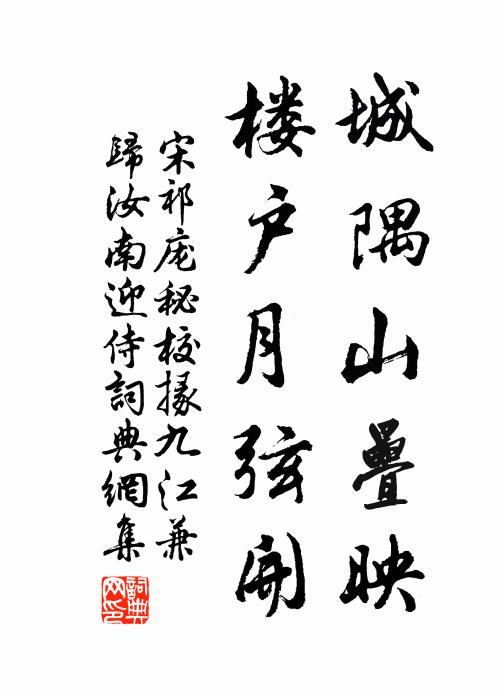 城隅山疊映
楼户月弦開
宋祁庞秘校掾九江兼
歸汝南迎侍詞典網集
詞典网印